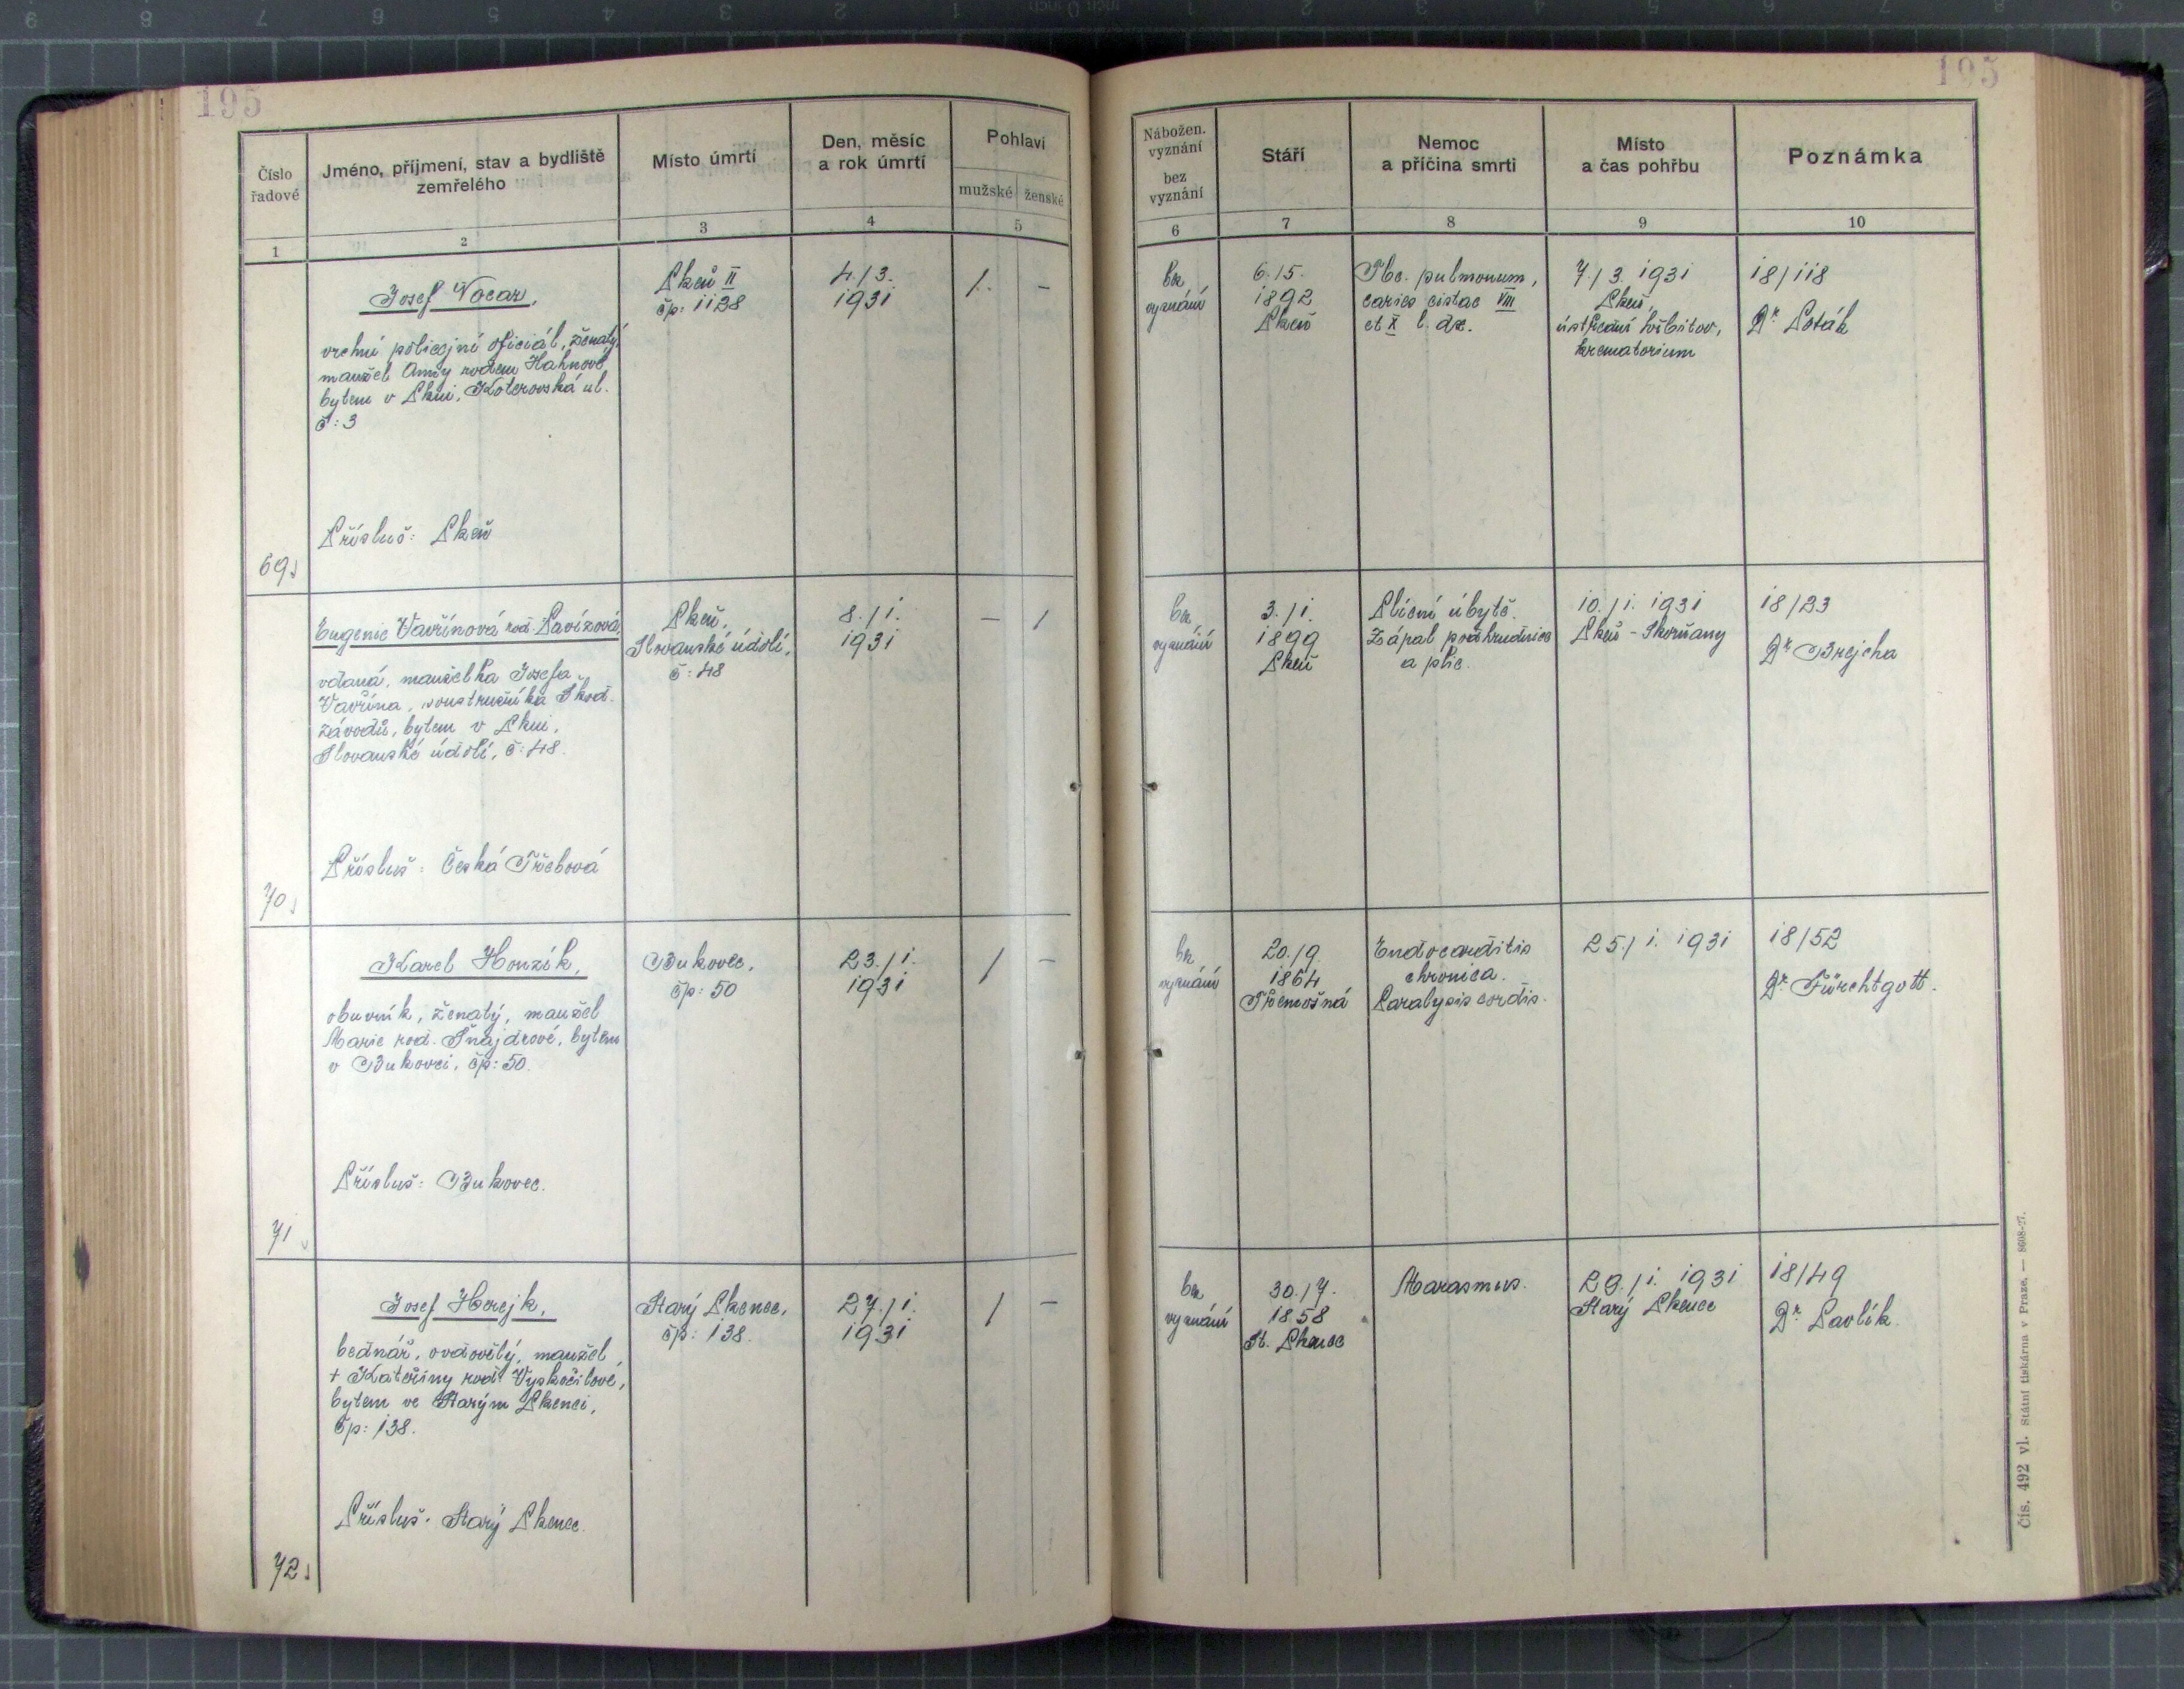 195
195
Číslo
řadové
Jméno, příjmení, stav a bydliště
zemřelého
Místo úmrtí
Den, měsíc
a rok úmrtí
Pohlaví
mužské ženské
Nábožen.
vyznání
bez
vyznání
Stáří
Nemoc
a příčina smrti
Místo
a čas pohřbu
Poznámka
1 2 3 4 5 6 7 8 9 10
69
Josef Vocar,
vrchní policejní oficiál, ženatý,
manžel Anny rodem Hahnové
bytem v Plzni, Koterovská ul.
č: 3
Přísluš: Plzeň
Plzeň II
čp: 1128
4./3.
1931
1. –
bez
vyznání
6./5.
1892
Plzeň
Tbc. pulmonum,
caries costae VIII
et X l. dx.
7./3. 1931
Plzeň,
ústřední hřbitov,
krematorium
18/118
Dr Poták
70
Eugenie Vavřínová rod. Pavízová,
vdaná, manželka Josefa
Vavřína, konstruktéra Škod.
závodů, bytem v Plzni,
Slovanské údolí, č: 48.
Přísluš: Česká Třebová
Plzeň,
Slovanské údolí,
č: 48
8./1.
1931
– 1
bez
vyznání
3./1.
1899
Plzeň
Plicní úbytě.
Zápal pohrudnice
a plic.
10./1. 1931
Plzeň - Skvrňany
18/23
Dr Brejcha
71
Karel Honzík,
obuvník, ženatý, manžel
Marie rod. Šnajdrové, bytem
v Bukovci, čp: 50.
Přísluš: Bukovec.
Bukovec,
čp: 50
23./1.
1931
1 –
bez
vyznání
20./9.
1864
Třemošná
Endocarditis
chronica.
Paralysis cordis.
25./1. 1931
18/52
Dr Fürchtgott.
72
Josef Herejk,
bednář, ovdovělý, manžel
+ Kateřiny rod. Vyskočilové,
bytem ve Starým Plzenci,
čp: 138.
Přísluš: Starý Plzenec.
Starý Plzenec,
čp: 138.
27./1.
1931
1 –
bez
vyznání
30./7.
1858
St. Plzenec
Marasmus.
29./1. 1931
Starý Plzenec
18/49
Dr Pavlík.
Čís. 492 vl. Státní tiskárna v Praze. — 8608-27.